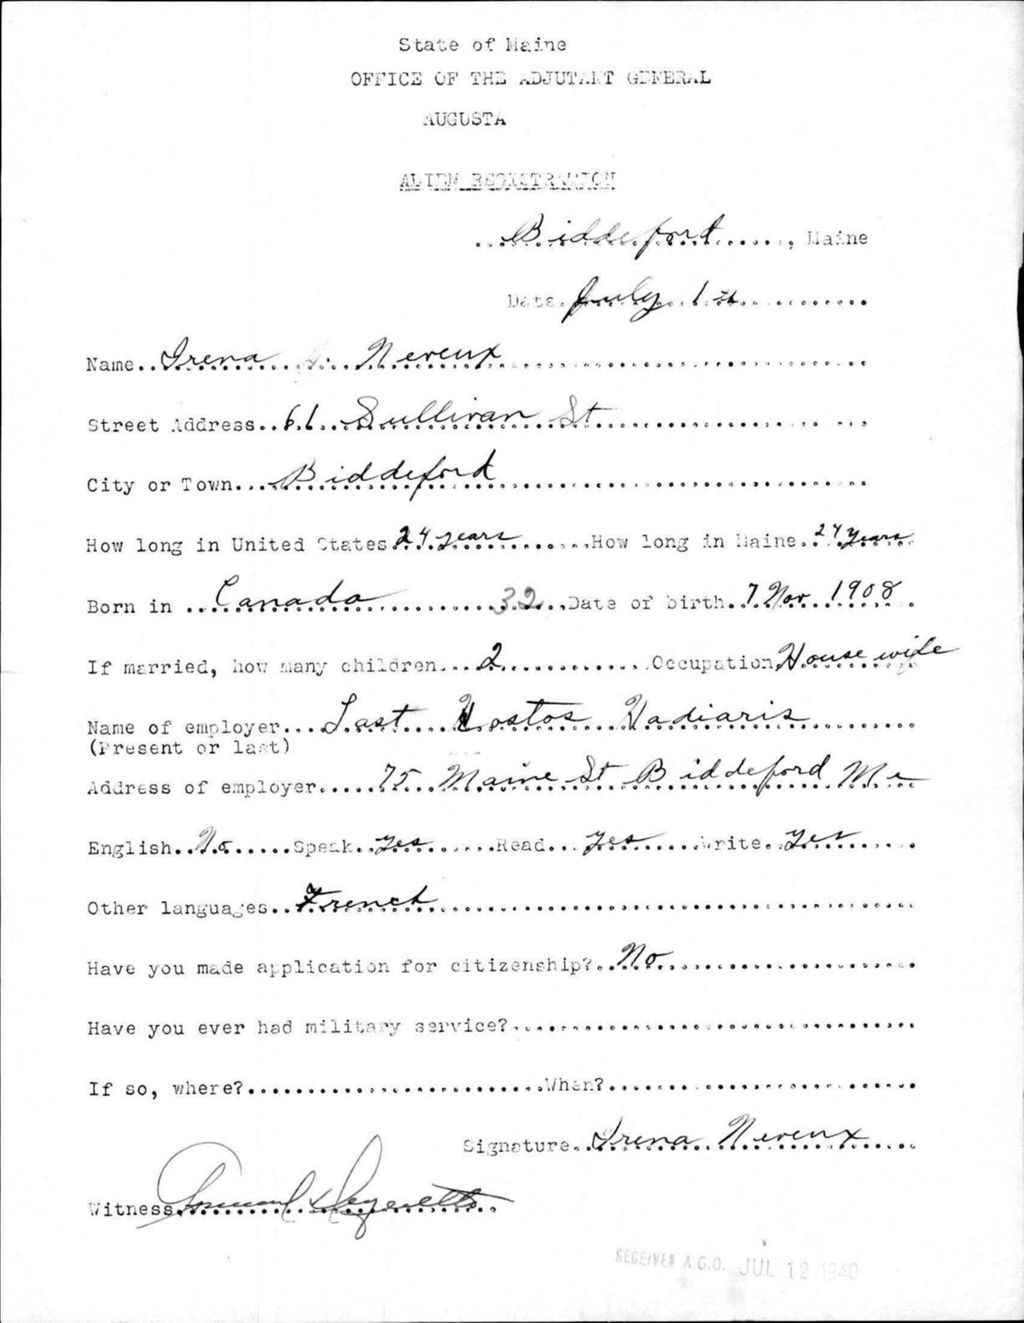 State of Maine
OFFICE OF THE ADJUTANT GENERAL
AUGUSTA
ALIEN REGISTRATION
Biddeford, Maine
Date July 1st
Name Irena Neveux
Street Address 61 Sullivan St
City or Town Biddeford
How long in United States 24 years How long in Maine 24 years
Born in Canada 32 Date of birth 7 Nov 1908
If married, how many children 2 Occupation House wife
Name of employer Last Kostos Vadiaris
(Present or last)
Address of employer 75 Maine St Biddeford Me
English No Speak yes Read yes Write yes
Other languages French
Have you made application for citizenship? No
Have you ever had military service?
If so, where? When?
Signature Irena Neveux
Witness
RECEIVED A.G.O. JUL 12 1940